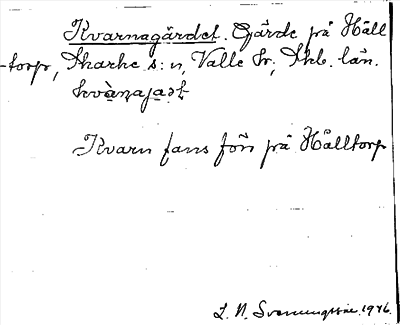 Kvarnagärdet. Gärde på Håll
-torp, Skarke s:n, Valle hr, Skb. län.
Kvarn fans förr på Hålltorp
L. N. Svenungsson 1946.